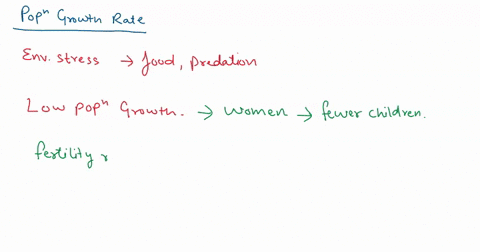 Popⁿ Growth Rate
Env. stress → food, predation
Low popⁿ Growth. → women → fewer children.
fertility r